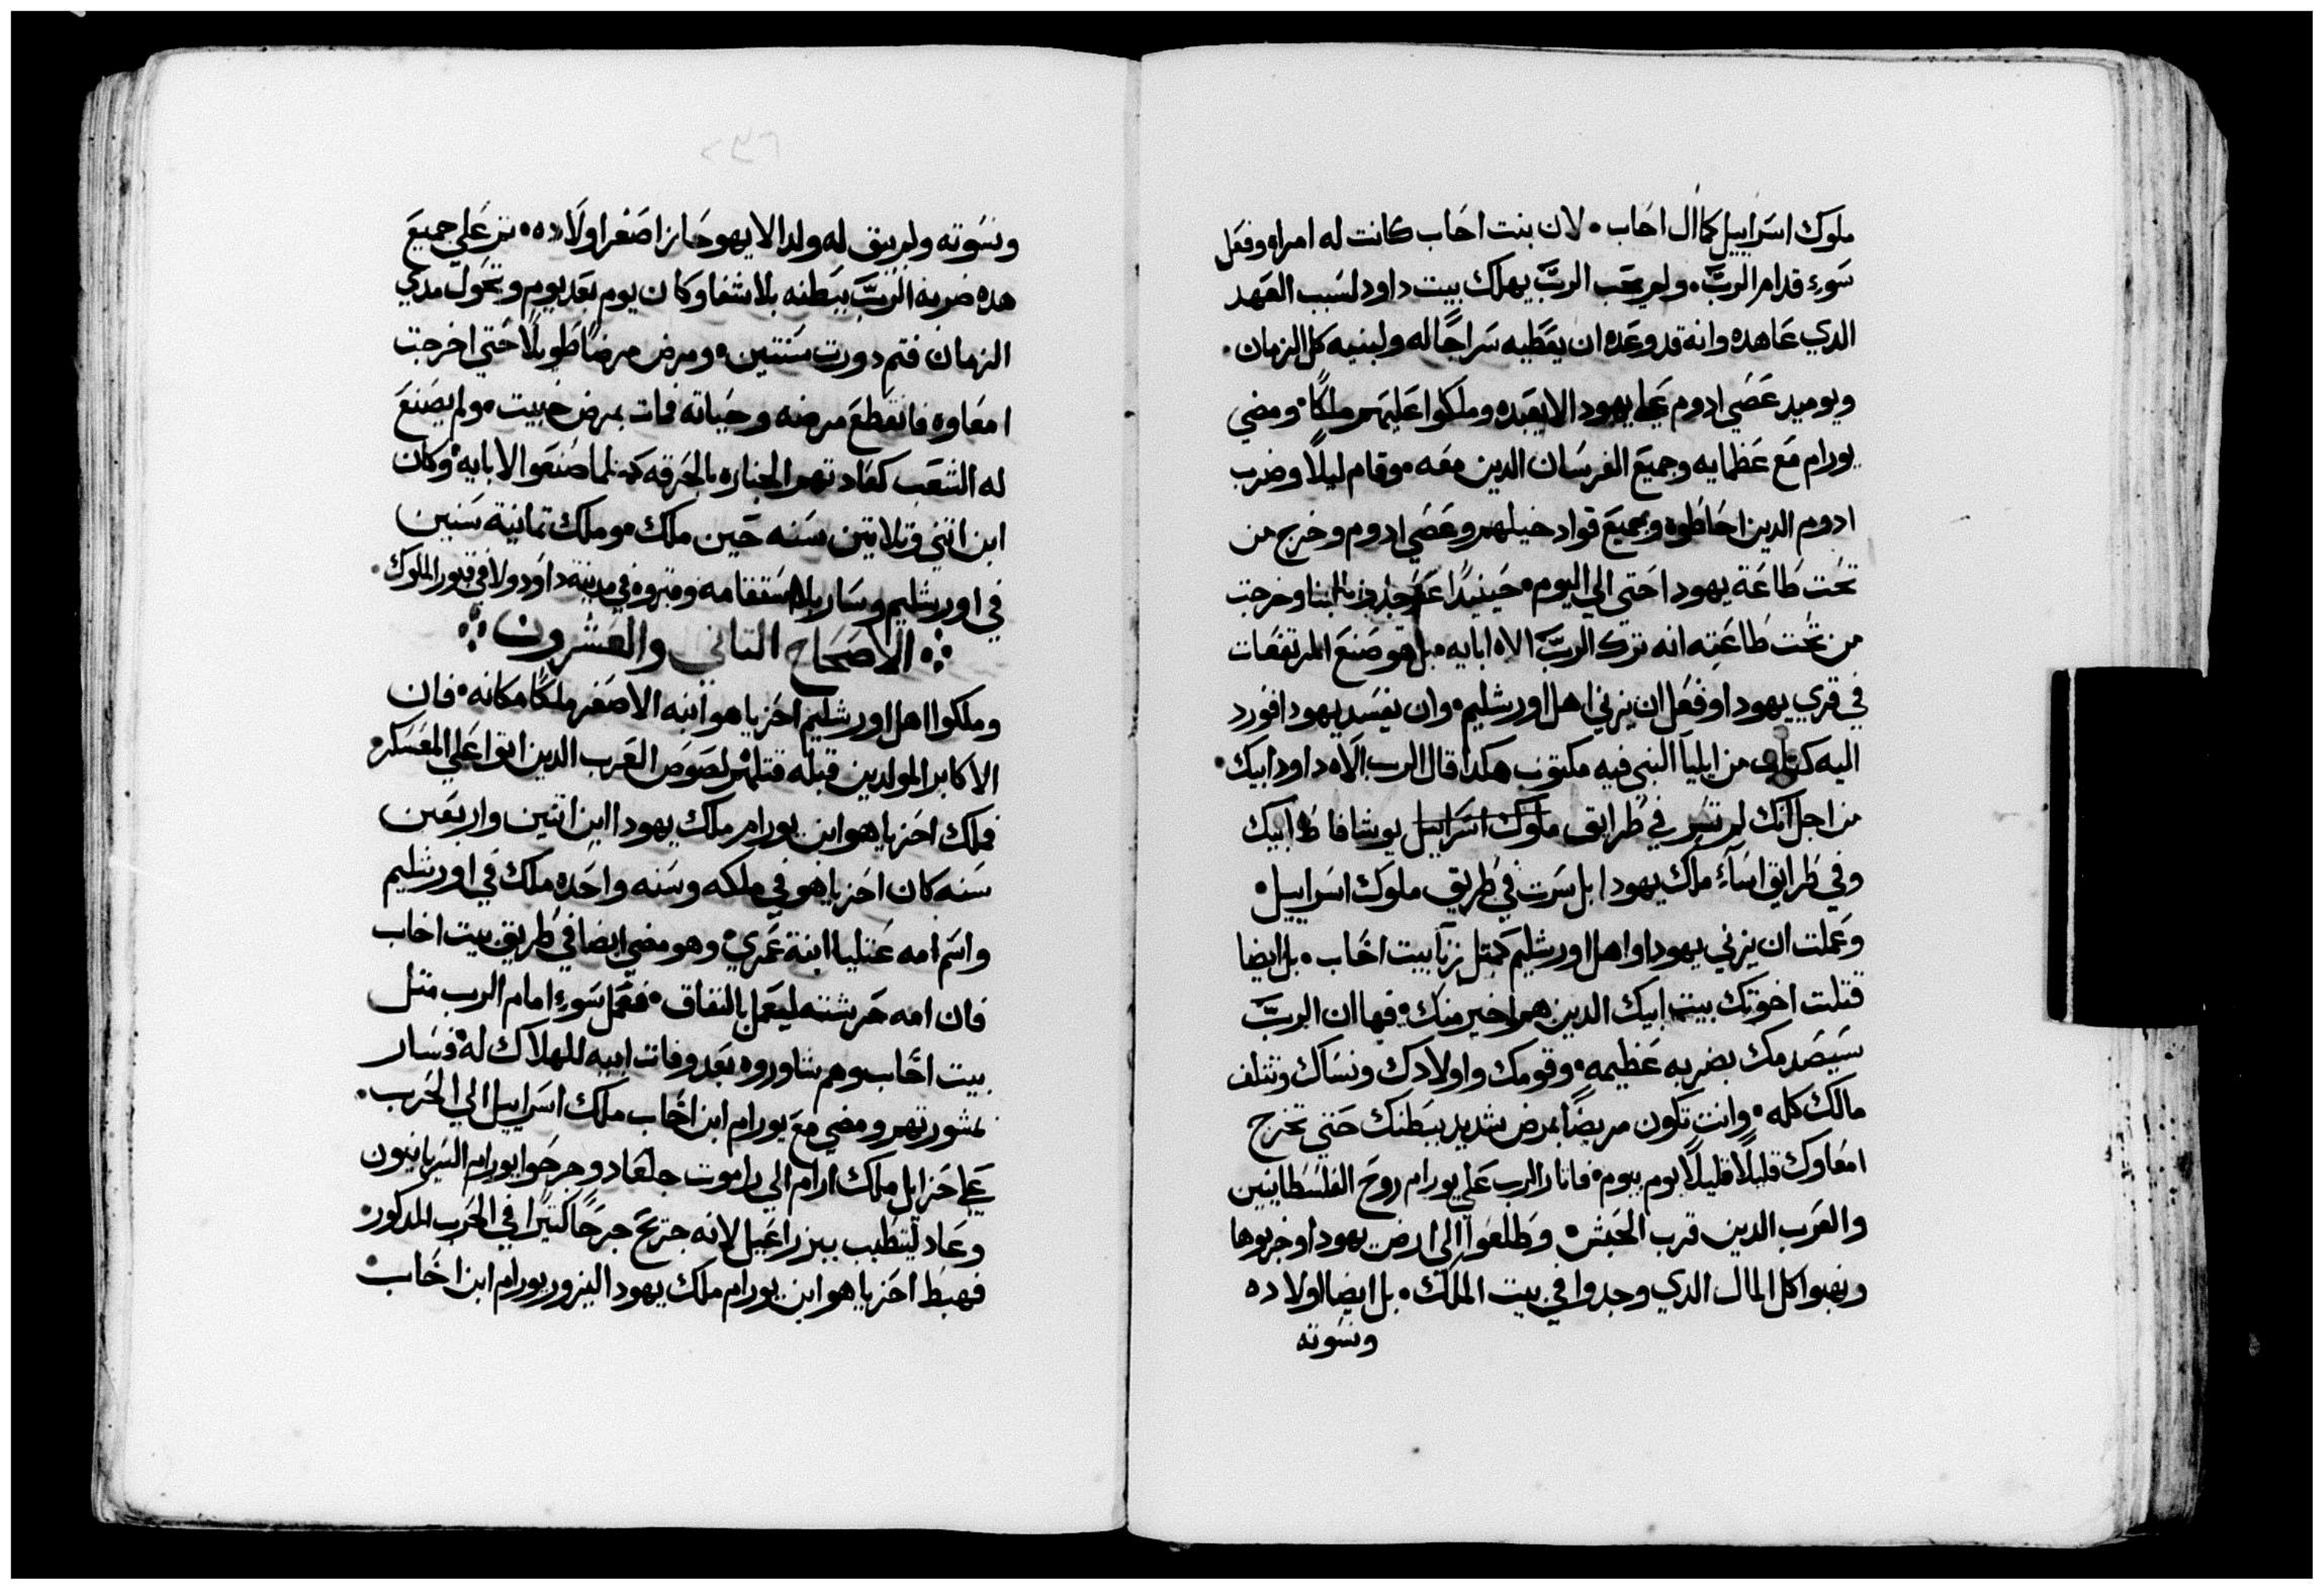 ملوك اسراييل كما ال احاب • لان بنت احاب كانت له امراه وفعل
سوء قدام الرب • ولم يحب الرب يهلك بيت داود لسبب العهد
الدي عاهده وانه قد وعده ان يعطيه سراجًا له ولبنيه كل الزمان •
ويوميد عصي ادوم علي يهودا لا يعبده وملكوا عليهم ملكًا • ومضي
يورام مع عظمايه وجميع الفرسان الدين معه • وقام ليلًا وضرب
ادوم الدين احاطوه وجميع قواد خيلهم وعصي ادوم وخرج من
تحت طاعة يهودا حتي الي اليوم • حينيدًا لبنا وخرجت
من تحت طاعته انه ترك الرب الاه ابايه • بل هو صنع المرتفعات
في قري يهودا وفعل ان يزني اهل اورشليم • وان يفسد يهودا فورد
اليه كتاب من ايليا النبي فيه مكتوب هكدا قال الرب الاه داود ابيك •
من اجل انك لم تسر في طرايق ملوك اسراييل يوشافاط ابيك
وفي طرايق اساء ملك يهودا بل سرت في طريق ملوك اسراييل •
وعملت ان يزني يهودا واهل اورشليم كمتل زنا بيت احاب • بل ايضا
قتلت اخوتك بيت ابيك الدين هم اخير منك • فها ان الرب
سيصدمك بضربه عظيمه • وقومك واولادك ونساك وتتلف
مالك كله • وانت تكون مريضًا بمرض شديد ببطنك حتي تخرج
امعاوك قليلًا قليلًا يوم بيوم • فاتار الرب علي يورام روح الفلسطانيين
والعرب الدين قرب الحبش • وطلعوا الي ارض يهودا وخربوها
ونهبوا كل المال الدي وجدوا في بيت الملك • بل ايضا اولاده
ونسوته
ونسوته ولم يبق له ولد الا يهوحاز اصغر اولاده • علي جميع
هده ضربه الرب ببطنه بلا شفا وكان يوم بعد يوم وتحول مدي
الزمان فتم دورت سنتين • ومرض مرضًا طويلًا حتي اخرجت
امعاوه فانقطع مرضه وحياته فمات بمرض خبيت • ولم يصنع
له الشعب كعادتهم الجنازه بالحرقه كمتلما صنعوا لابايه • وكان
ابن اتني وتلاتين سنه حين ملك • وملك تمانية سنين
في اورشليم وسار بلا استقامه وقبروه في مدينة داود ولا في قبور الملوك •
الاصحاح التاني والعشرون
وملكوا اهل اورشليم احزياهو ابنه الاصغر ملكًا مكانه • فان
الاكابر المولدين قبله قتلهم لصوص العرب الدين اتوا علي المعسكر •
فملك احزياهو ابن يورام ملك يهودا ابن اتنين واربعين
سنه كان احزياهو في ملكه وسنه واحده ملك في اورشليم
واسم امه عتليا ابنة عمري • وهو مضي ايضا في طريق بيت احاب
فان امه حرشته ليعمل بالنفاق • فعمل سوء امام الرب متل
بيت احاب وهم شاوروه بعد وفات ابيه للهلاك له • فسار
بمشورتهم ومضي مع يورام ابن احاب ملك اسراييل الي الحرب •
علي حزايل ملك ارام الي راموت جلعاد وجرحوا يورام السريانيون
وعاد ليتطبب بيزراعيل لانه جتريح جرحًا كتيرا في الحرب المدكور •
فهبط احزياهو ابن يورام ملك يهودا ليزور يورام ابن احاب •